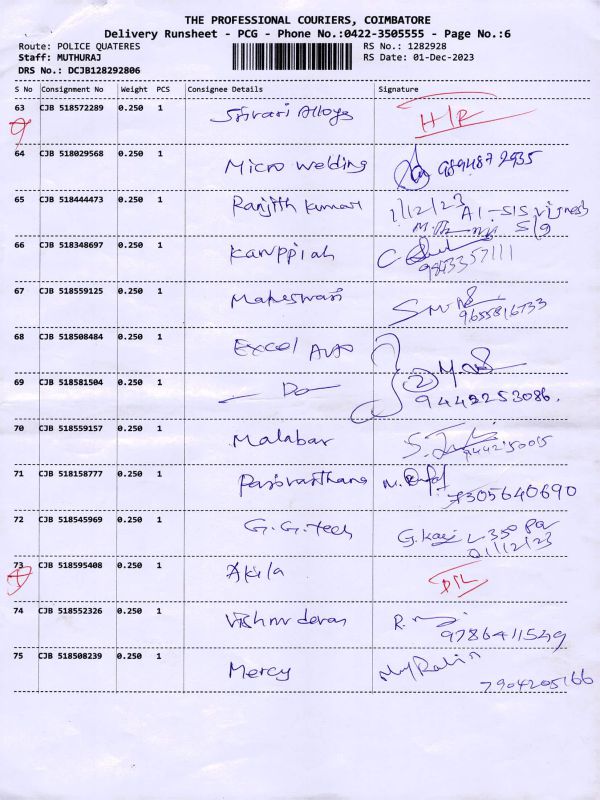 THE PROFESSIONAL COURIERS, COIMBATORE
Delivery Runsheet - PCG - Phone No.:0422-3505555 - Page No.:6
Route: POLICE QUATERES RS No.: 1282928
Staff: MUTHURAJ RS Date: 01-Dec-2023
DRS No.: DCJB128292806
S No Consignment No Weight PCS Consignee Details Signature
63 CJB 518572289 0.250 1 Srivari Alloys H/R
64 CJB 518029568 0.250 1 Micro welding 989487 2935
65 CJB 518444473 0.250 1 Ranjith kumar 1/12/23
66 CJB 518348697 0.250 1 Karuppiah 9843357111
67 CJB 518559125 0.250 1 Maheswari 9655816733
68 CJB 518508484 0.250 1 Excel Auto
69 CJB 518581504 0.250 1 — Do — 2 9442253086.
70 CJB 518559157 0.250 1 Malabar
71 CJB 518158777 0.250 1 7305640690
72 CJB 518545969 0.250 1 G.G.tech 01/12/23
73 CJB 518595408 0.250 1 Akila D/L
74 CJB 518552326 0.250 1 Vishnu devan 9786411549
75 CJB 518508239 0.250 1 Mercy 7904205166